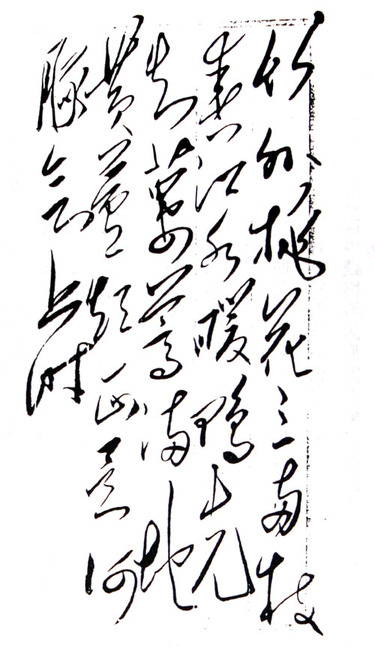 竹外桃花三两枝
春江水暖鸭先
知蒌蒿满地
黄芦短正是河
豚欲上时